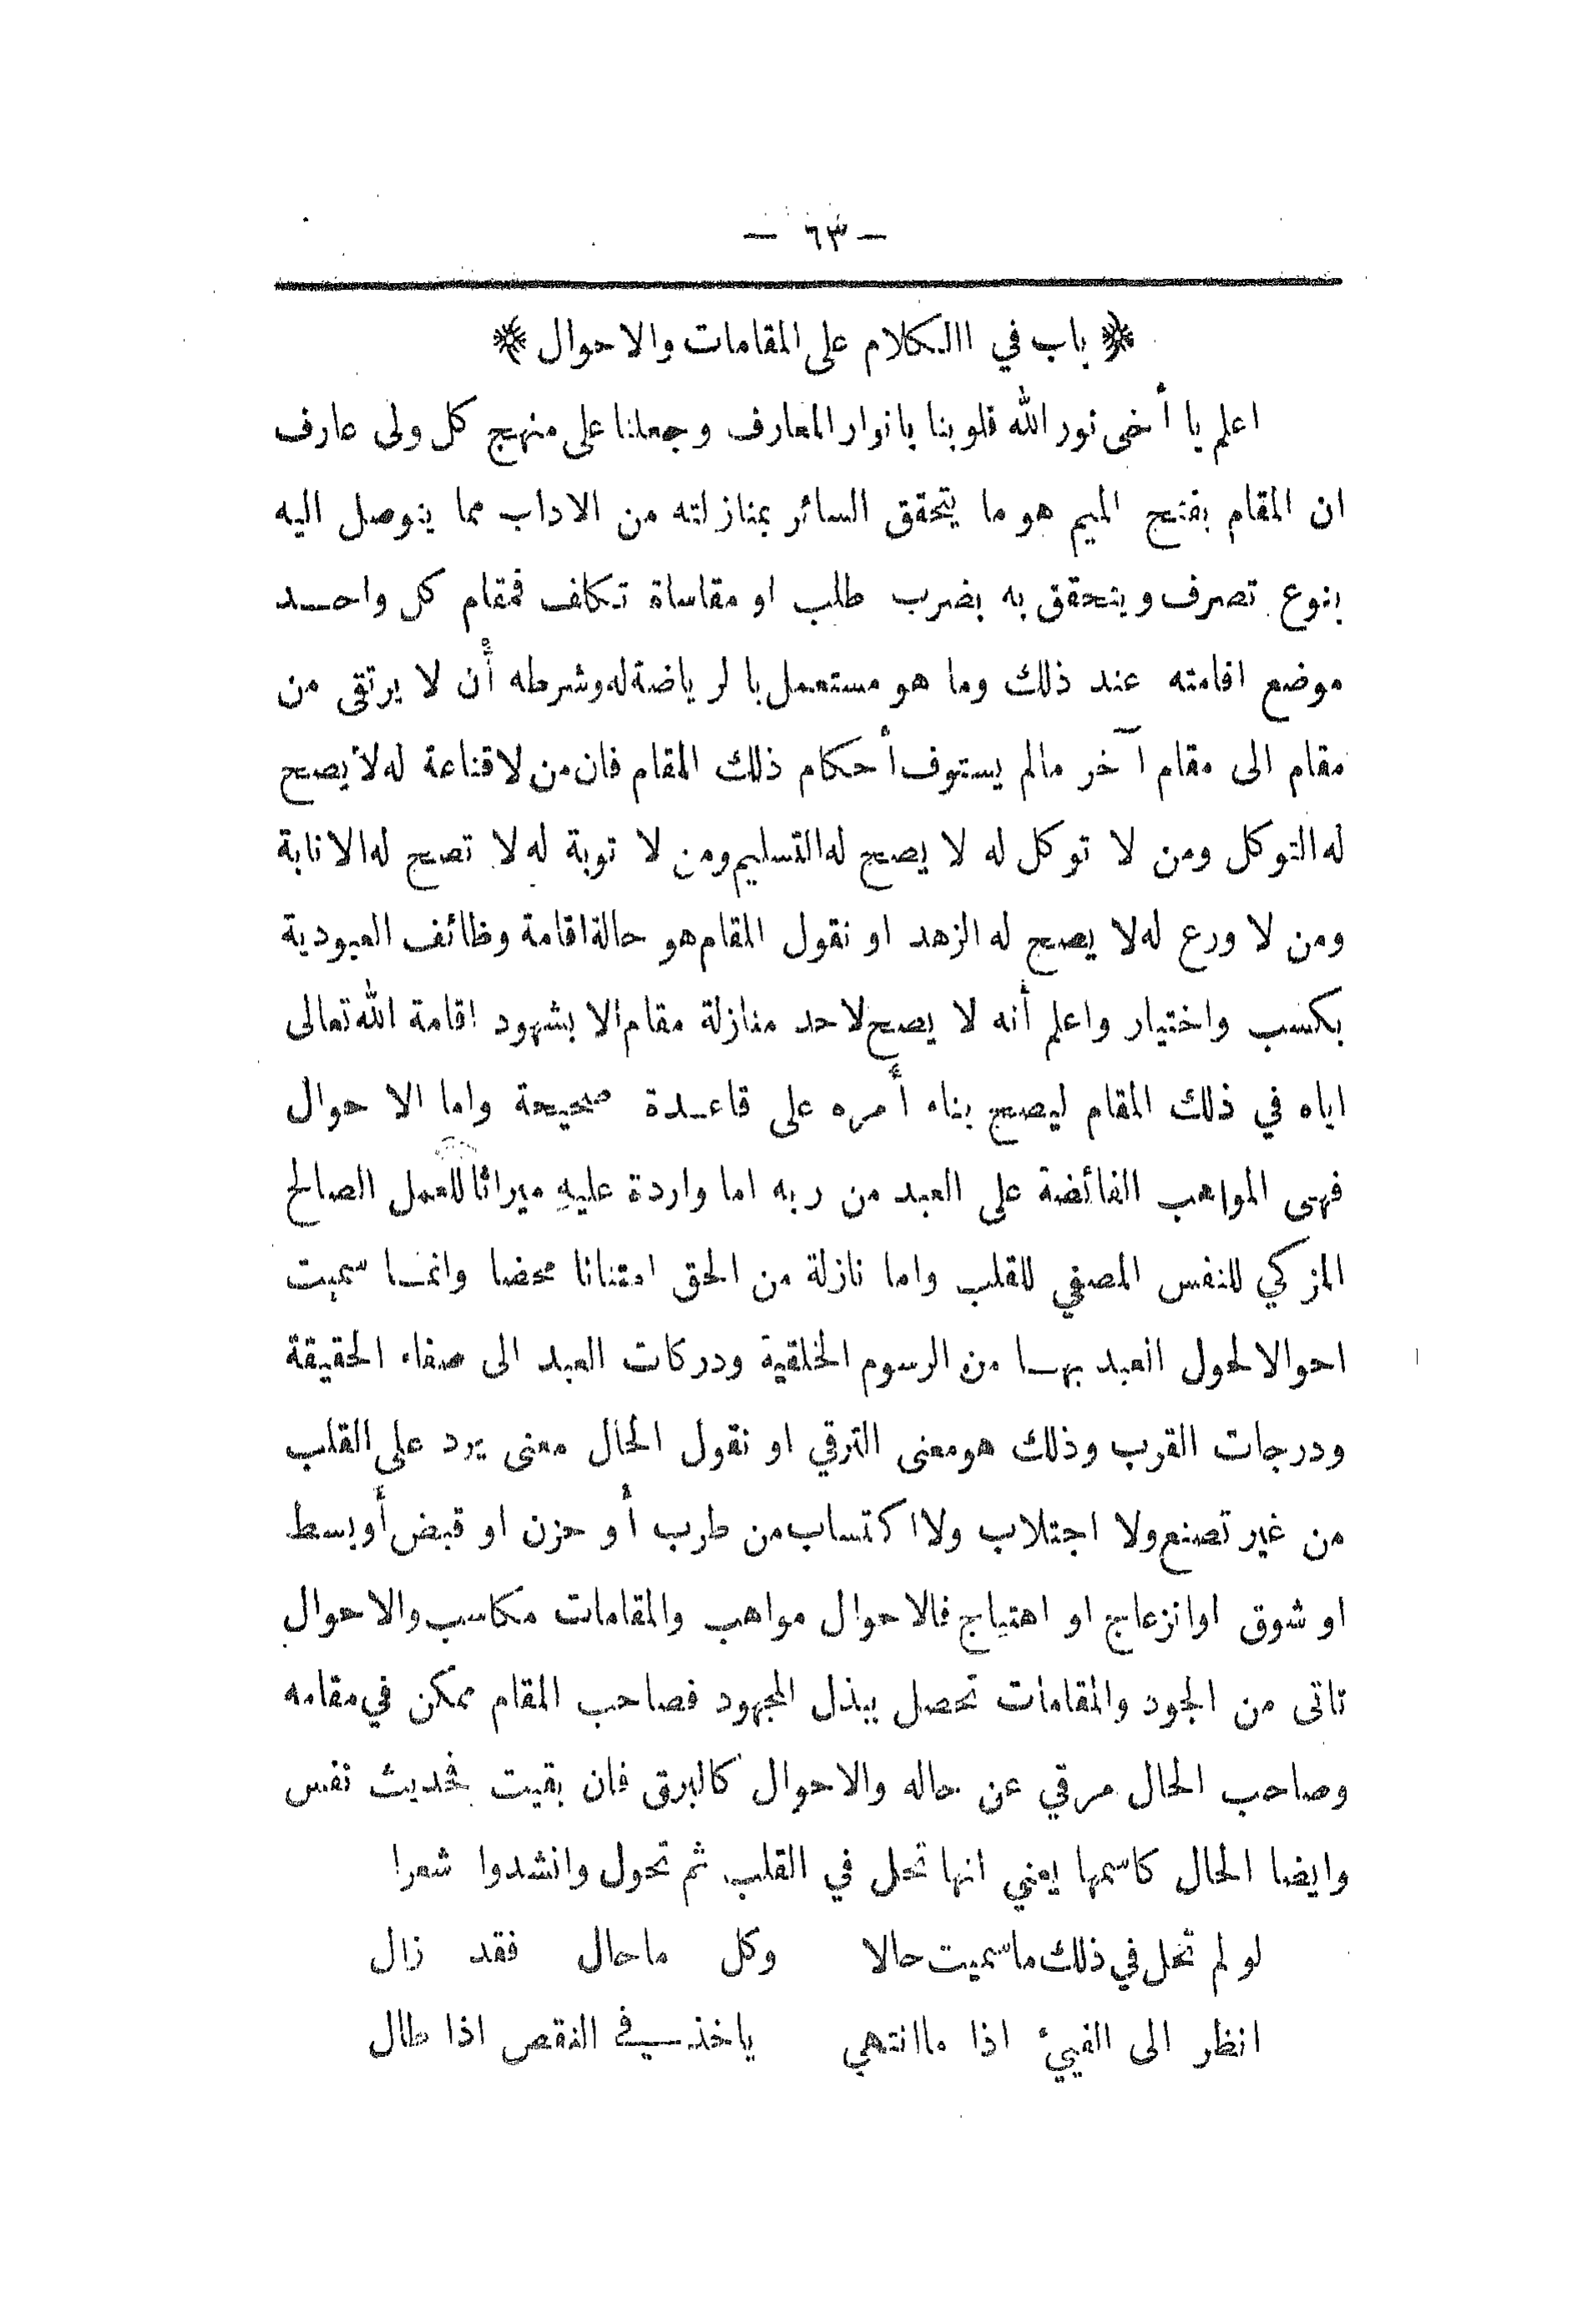 — ٦٣ —
﴿ باب في االكلام على المقامات والاحوال ﴾
اعلم يا أخى نور الله قلوبنا بانوار المعارف وجعلنا على منهج كل ولى عارف
ان المقام بفتح الميم هو ما يتحقق السائر بمنازلته من الاداب مما يتوصل اليه
بنوع تصرف ويتحقق به بضرب طلب او مقاساة تكلف فمقام كل واحد
موضع اقامته عند ذلك وما هو مستعمل بالرياضة له وشرطه أن لا يرتقى من
مقام الى مقام آخر مالم يستوف أحكام ذلك المقام فان من لا قناعة له لا يصح
له التوكل ومن لا توكل له لا يصح له التسليم ومن لا توبة له لا تصح له الانابة
ومن لا ورع له لا يصح له الزهد او نقول المقام هو حالة اقامة وظائف العبودية
بكسب واختيار واعلم أنه لا يصح لاحد منازلة مقام الا بشهود اقامة الله تعالى
اياه في ذلك المقام ليصح بناء أمره على قاعدة صحيحة واما الاحوال
فهى المواهب الفائضة على العبد من ربه اما واردة عليه ميراثا للعمل الصالح
المزكي للنفس المصفي للقلب واما نازلة من الحق امتنانا محضا وانما سميت
احوالا لحول العبد بها من الرسوم الخلقية ودركات العبد الى صفاء الحقيقة
ودرجات القرب وذلك هو معنى الترقي او نقول الحال معنى يرد على القلب
من غير تصنع ولا اجتلاب ولا اكتساب من طرب أو حزن او قبض أو بسط
او شوق او انزعاج او اهتياج فالاحوال مواهب والمقامات مكاسب والاحوال
تاتى من الجود والمقامات تحصل ببذل المجهود فصاحب المقام ممكن في مقامه
وصاحب الحال مرقي عن حاله والاحوال كالبرق فان بقيت فحديث نفس
وايضا الحال كاسمها يعني انها تحل في القلب ثم تحول وانشدوا شعرا
لو لم تحل في ذلك ما سميت حالا وكل ماحال فقد زال
انظر الى الفيئ اذا ما انتهي ياخذ في النقص اذا طال